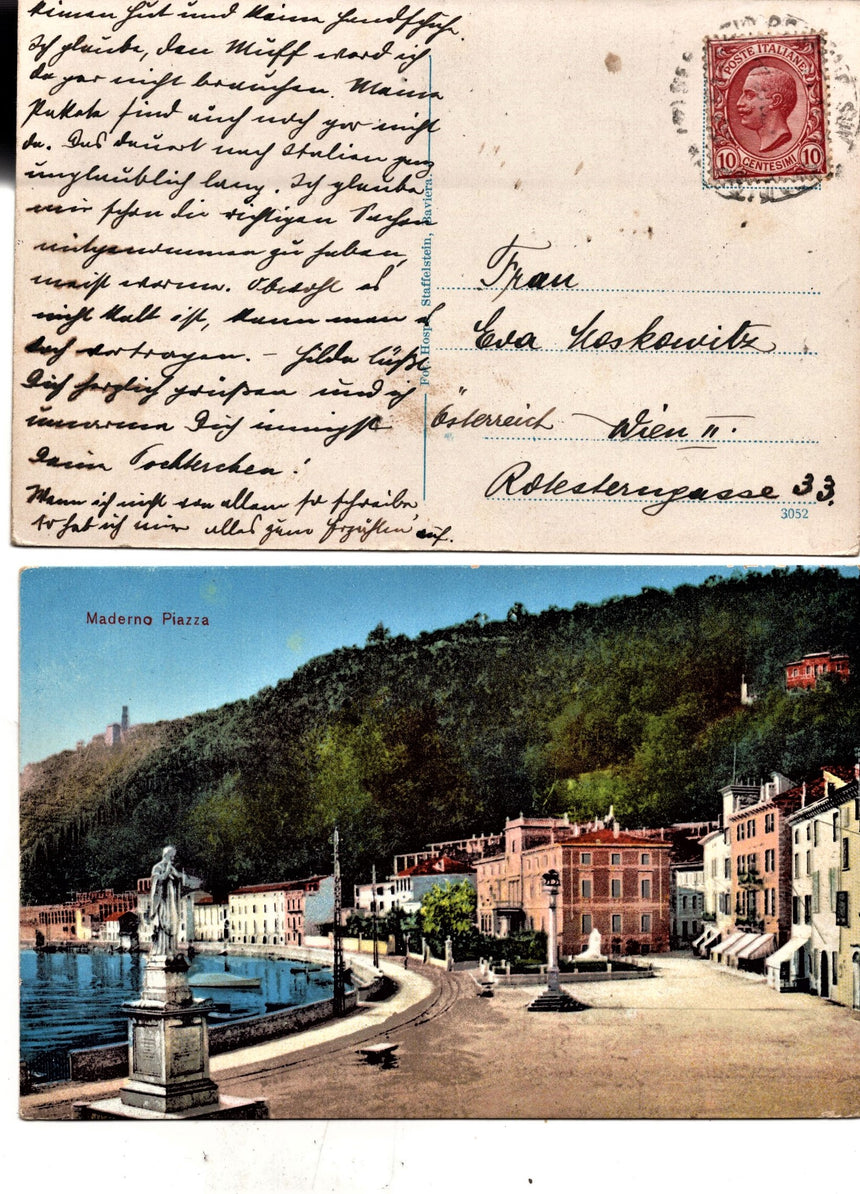 keinen Hut und keine Handschuhe.
Ich glaube, den Muff werd ich
da gar nicht brauchen. Meine
Pakete sind auch noch gar nicht
da. Das dauert nach Italien ganz
unglaublich lang. Ich glaube
mir schon die richtigen Sachen
mitgenommen zu haben,
meist warme. Obwohl es
nicht kalt ist, kann man es
doch vertragen. – Hilda läßt
Dich herzlich grüßen und ich
umarme Dich innigst
Deine Tochterchen!
Wenn ich nicht von allem so schreibe
so hat ich mir alles zum Erzählen auf.
Staffelstein, Baviera
POSTE ITALIANE
10 CENTESIMI 10
Frau
Eva Moskowitz
Österreich Wien II.
Rotesterngasse 33.
3052
Maderno Piazza